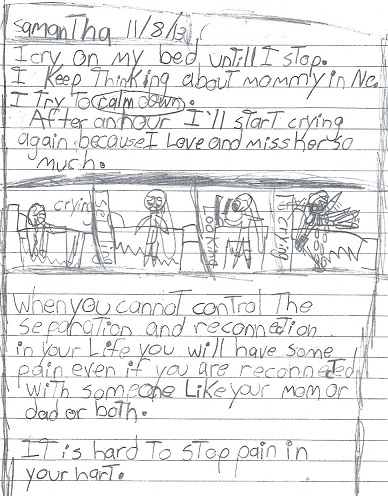 Samantha 11/8/13
I cry on my bed untill I stop.
I keep Thinking about mommy in Nc.
I Try To calm down.
After an hour I'll start crying
again because I Love and miss Her so
much.
crying
Looking
crying
When you cannot control The
separation and reconnection
in your Life you will have some
pain even if you are reconneted
with someone Like your mom or
dad or both.
IT is hard To stop pain in
your hart.